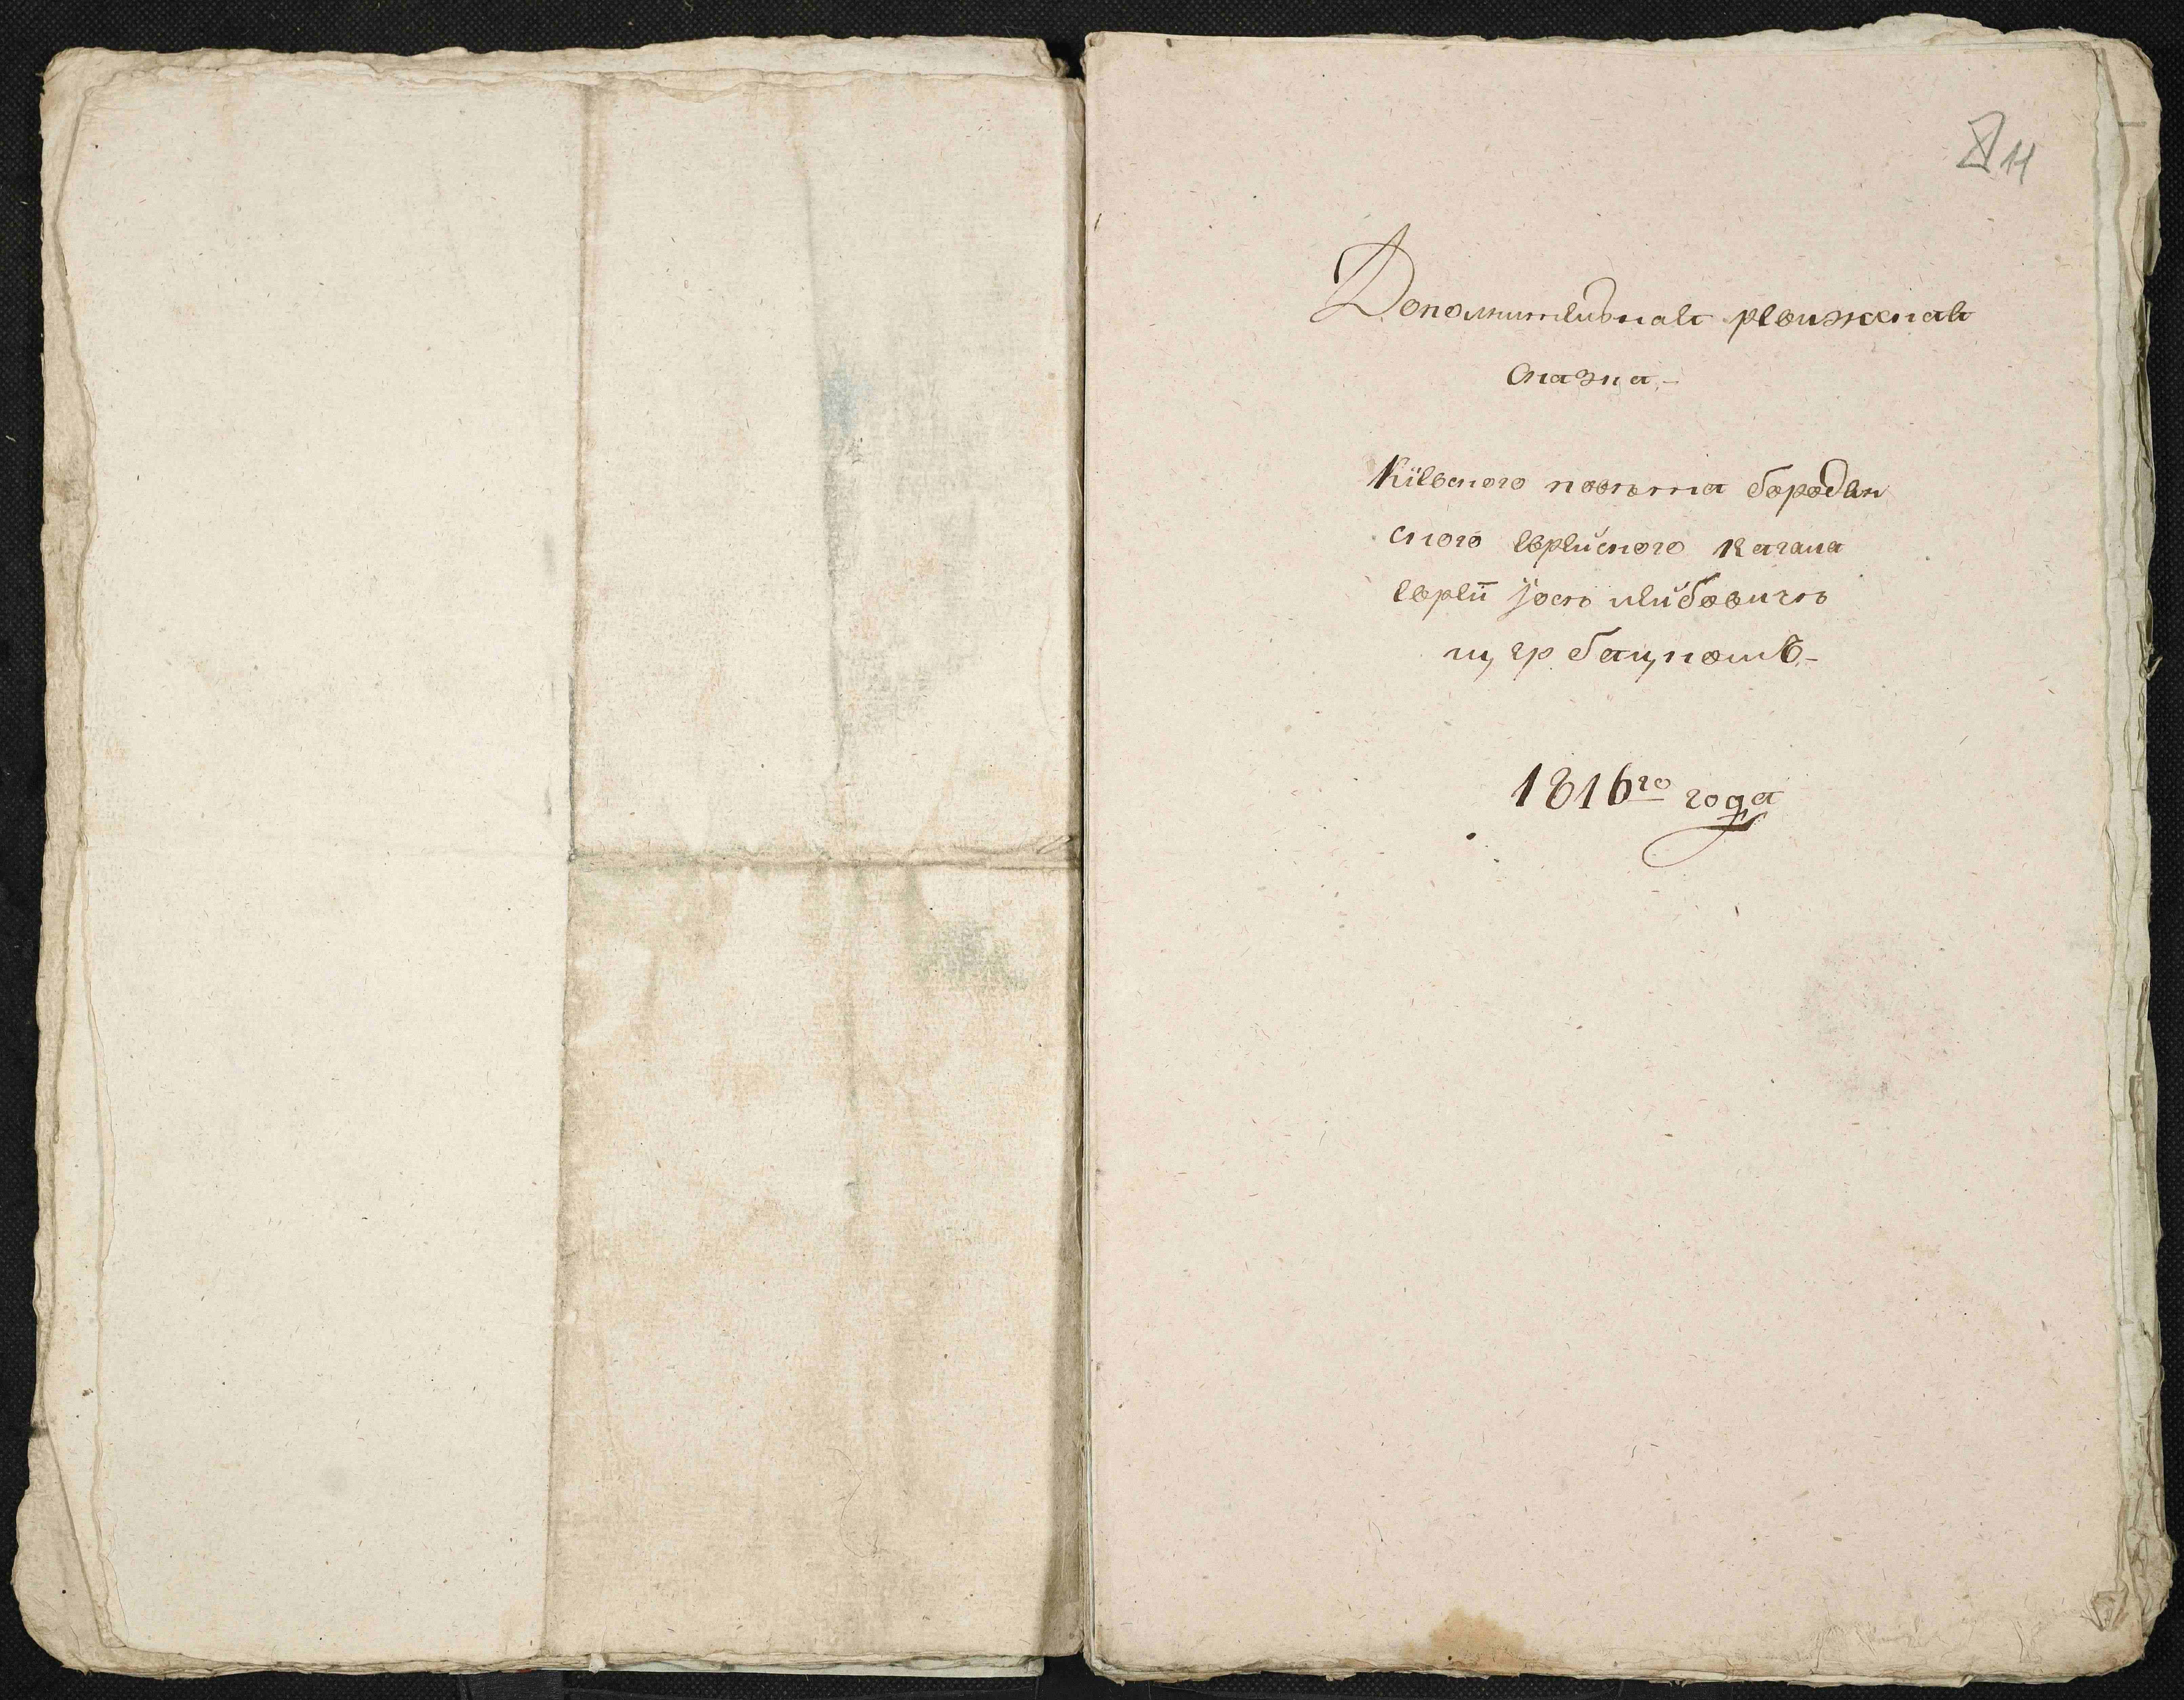 11
Дополнителная ревижская
Сказка.-
Кіевского повета бородян
ского еврейского кагала
еврей Іось лейбовичъ
1816го года